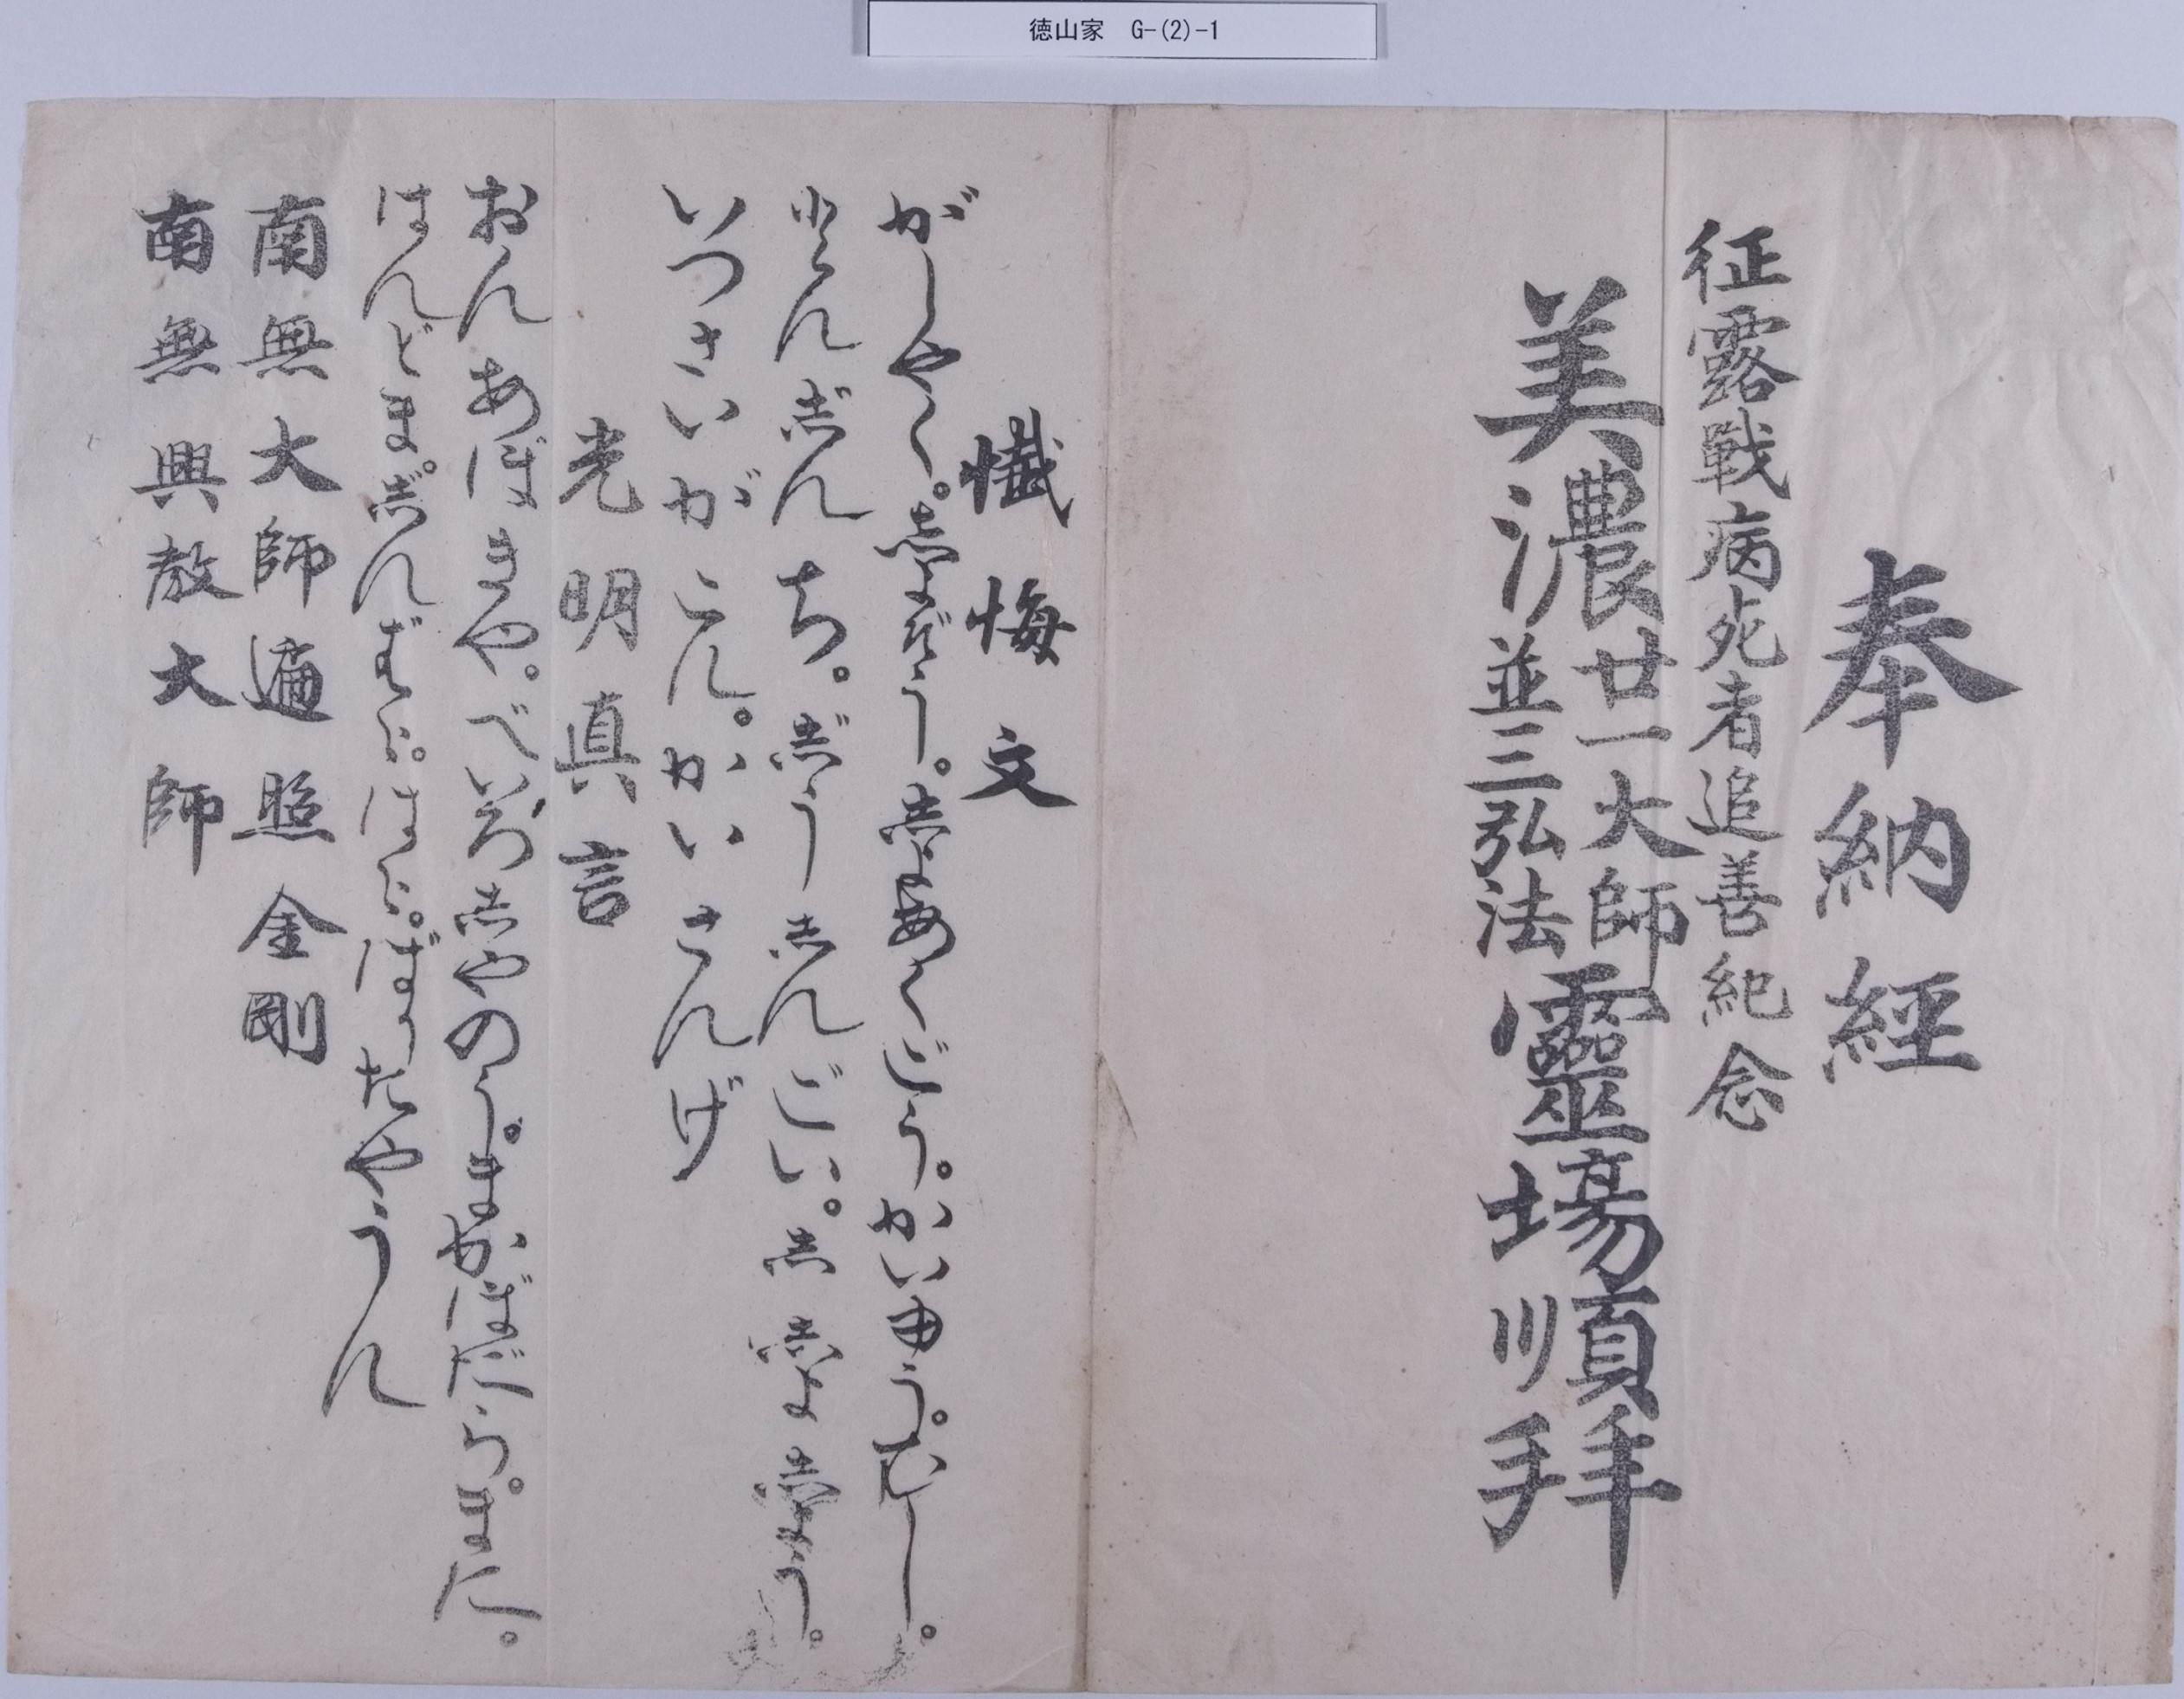 徳山家 G-(2)-1
奉納経
征露戦病死者追善紀念
美濃廿一大師並三弘法霊場順拝
懺悔文
がしやく。志よぞう。志よあくごう。かい由う。むし。
とんぢんち。ぢうしんごい。志志よ志よう。
いつさいがこん。かいさんげ
光明真言
おんあぼきや。べいろしやのう。まかぼだら。まに。
はんどま。じんばら。はら。ばりたやうん
南無大師遍照金剛
南無興教大師